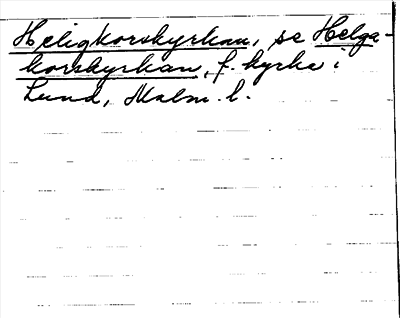 Heligkorskyrkan, se Helga-
korskyrkan, f. kyrka i
Lund, Malm. l.